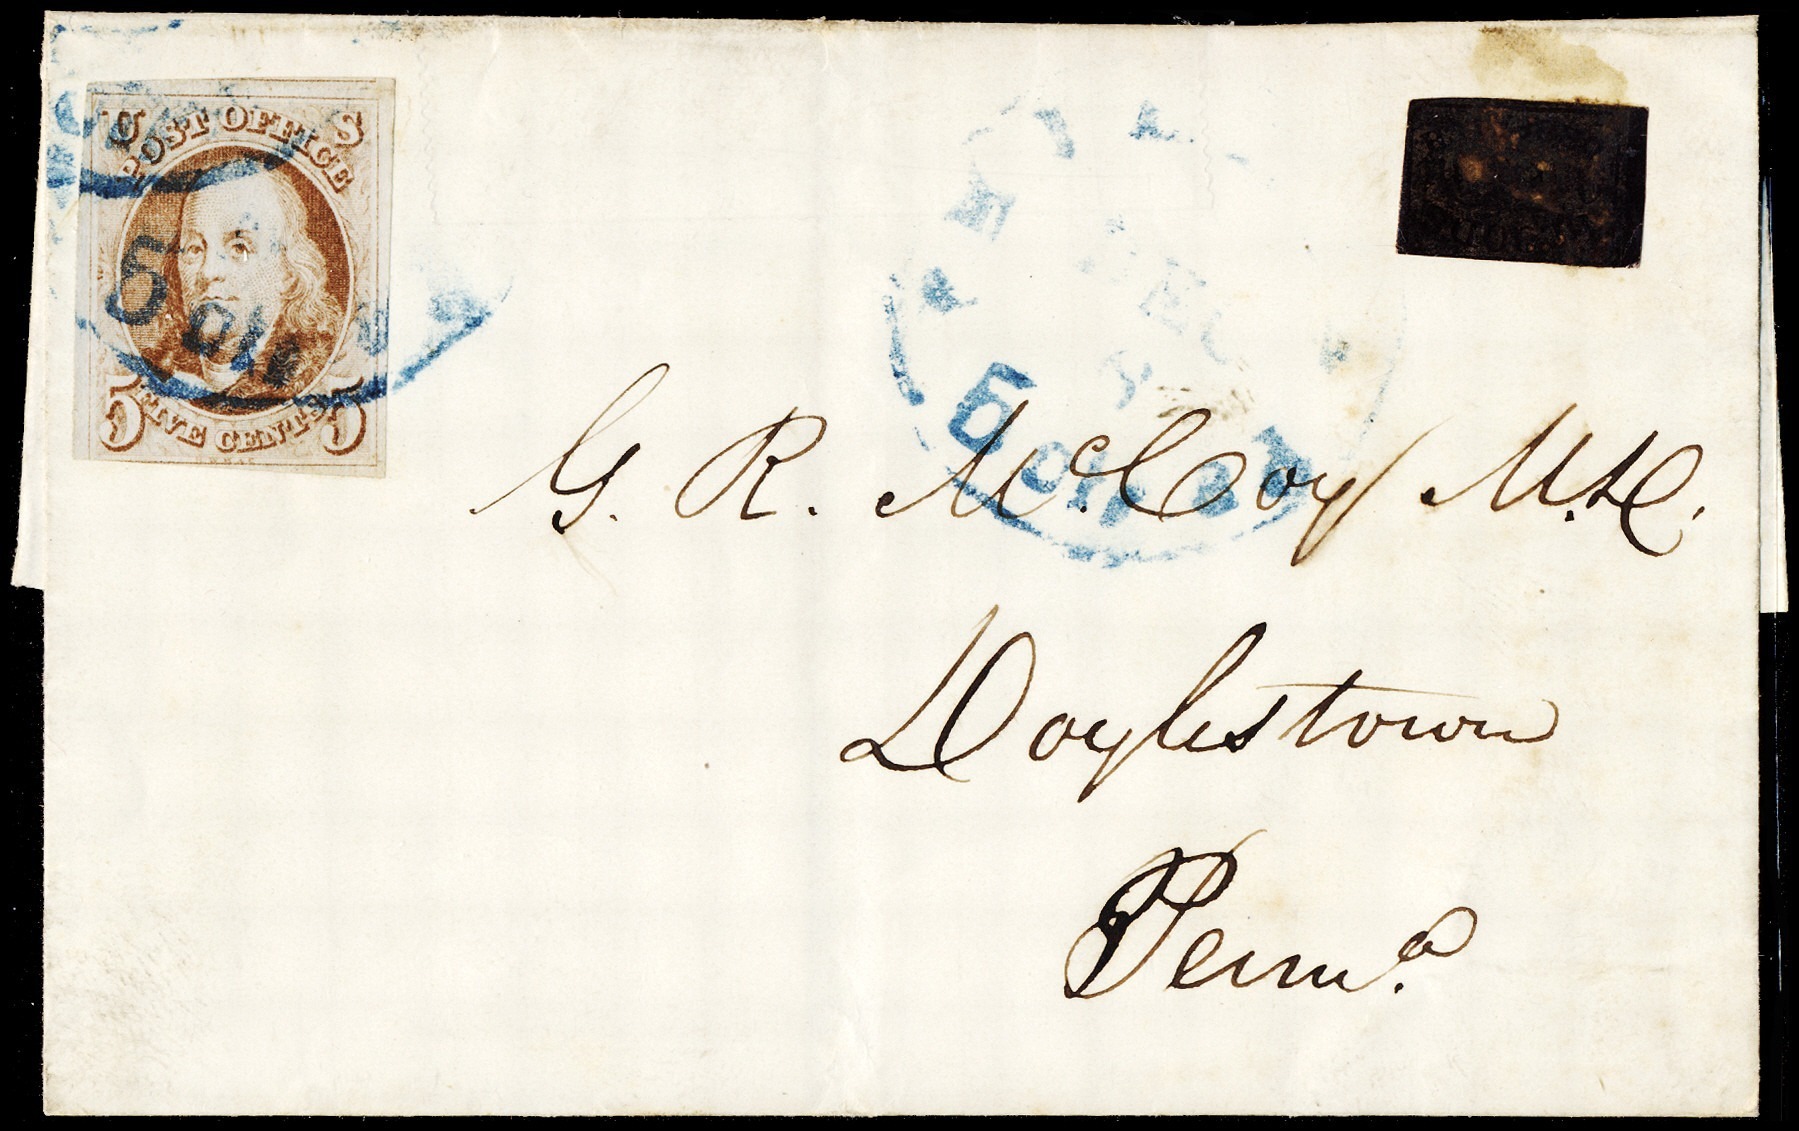 U S
POST OFFICE
FIVE CENTS
5 5
5 cts
DEC
5 cts
G. R. McCoy M.D.
Doylestown
Penna.